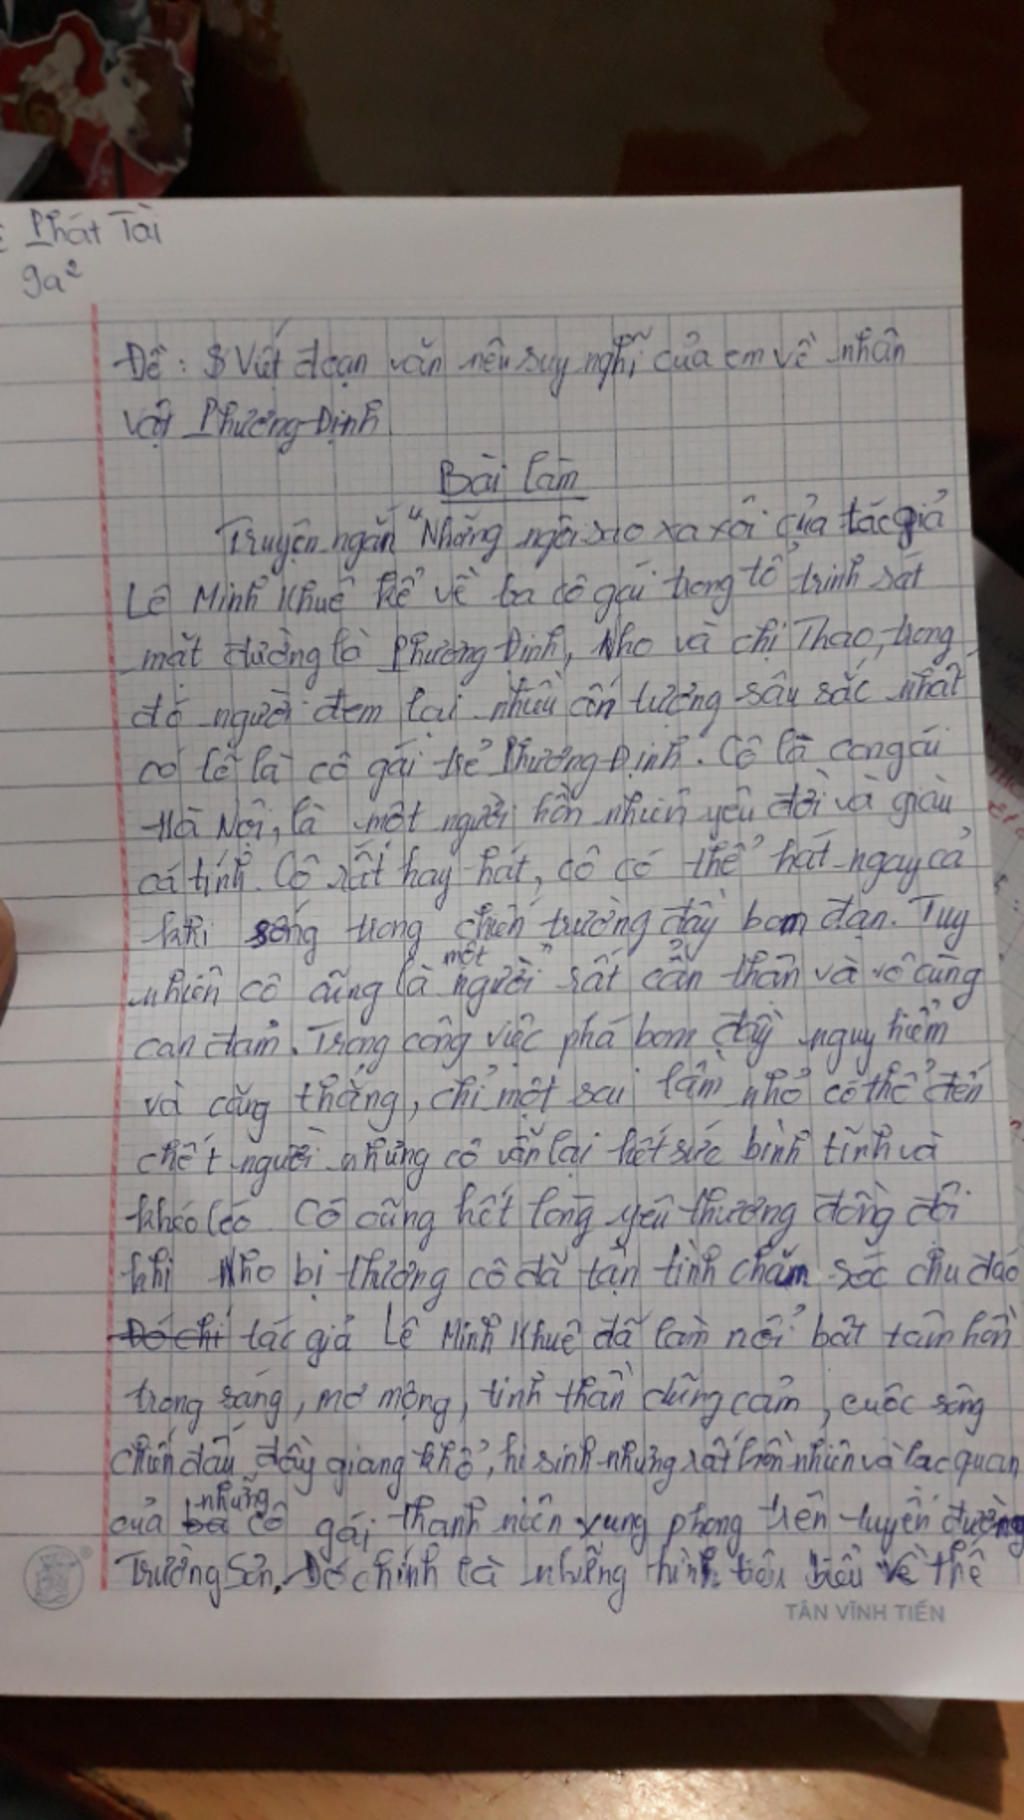 Phát Tài
9a²
Đề: Viết đoạn văn nêu suy nghĩ của em về nhân
vật Phương Định
Bài làm
Truyện ngắn "Những ngôi sao xa xôi của tác giả
Lê Minh Khuê kể về ba cô gái trong tổ trinh sát
mặt đường là Phương Định, Nho và chị Thao, trong
đó người đem lại nhiều ấn tượng sâu sắc nhất
có lẽ là cô gái trẻ Phương Định. Cô là con gái
Hà Nội, là một người hồn nhiên yêu đời và giàu
cá tính. Cô rất hay hát, cô có thể hát ngay cả
khi sống trong chiến trường đầy bom đạn. Tuy
nhiên cô cũng là một người rất cẩn thận và vô cùng
can đảm. Trong công việc phá bom đầy nguy hiểm
và căng thẳng, chỉ một sai lầm nhỏ có thể đến
chết người nhưng cô vẫn lại hết sức bình tĩnh và
khéo léo Cô cũng hết lòng yêu thương đồng đội
khi Nho bị thương cô đã tận tình chăm sóc chu đáo
tác giả Lê Minh Khuê đã làm nổi bật tâm hồn
trong sáng, mơ mộng, tinh thần dũng cảm, cuộc sống
chiến đấu đầy giang khổ, hi sinh nhưng rất hồn nhiên và lạc quan
của những cô gái thanh niên xung phong trên tuyến đường
Trường Sơn. Đó chính là những hình tiêu biểu về thế
TÂN VĨNH TIẾN